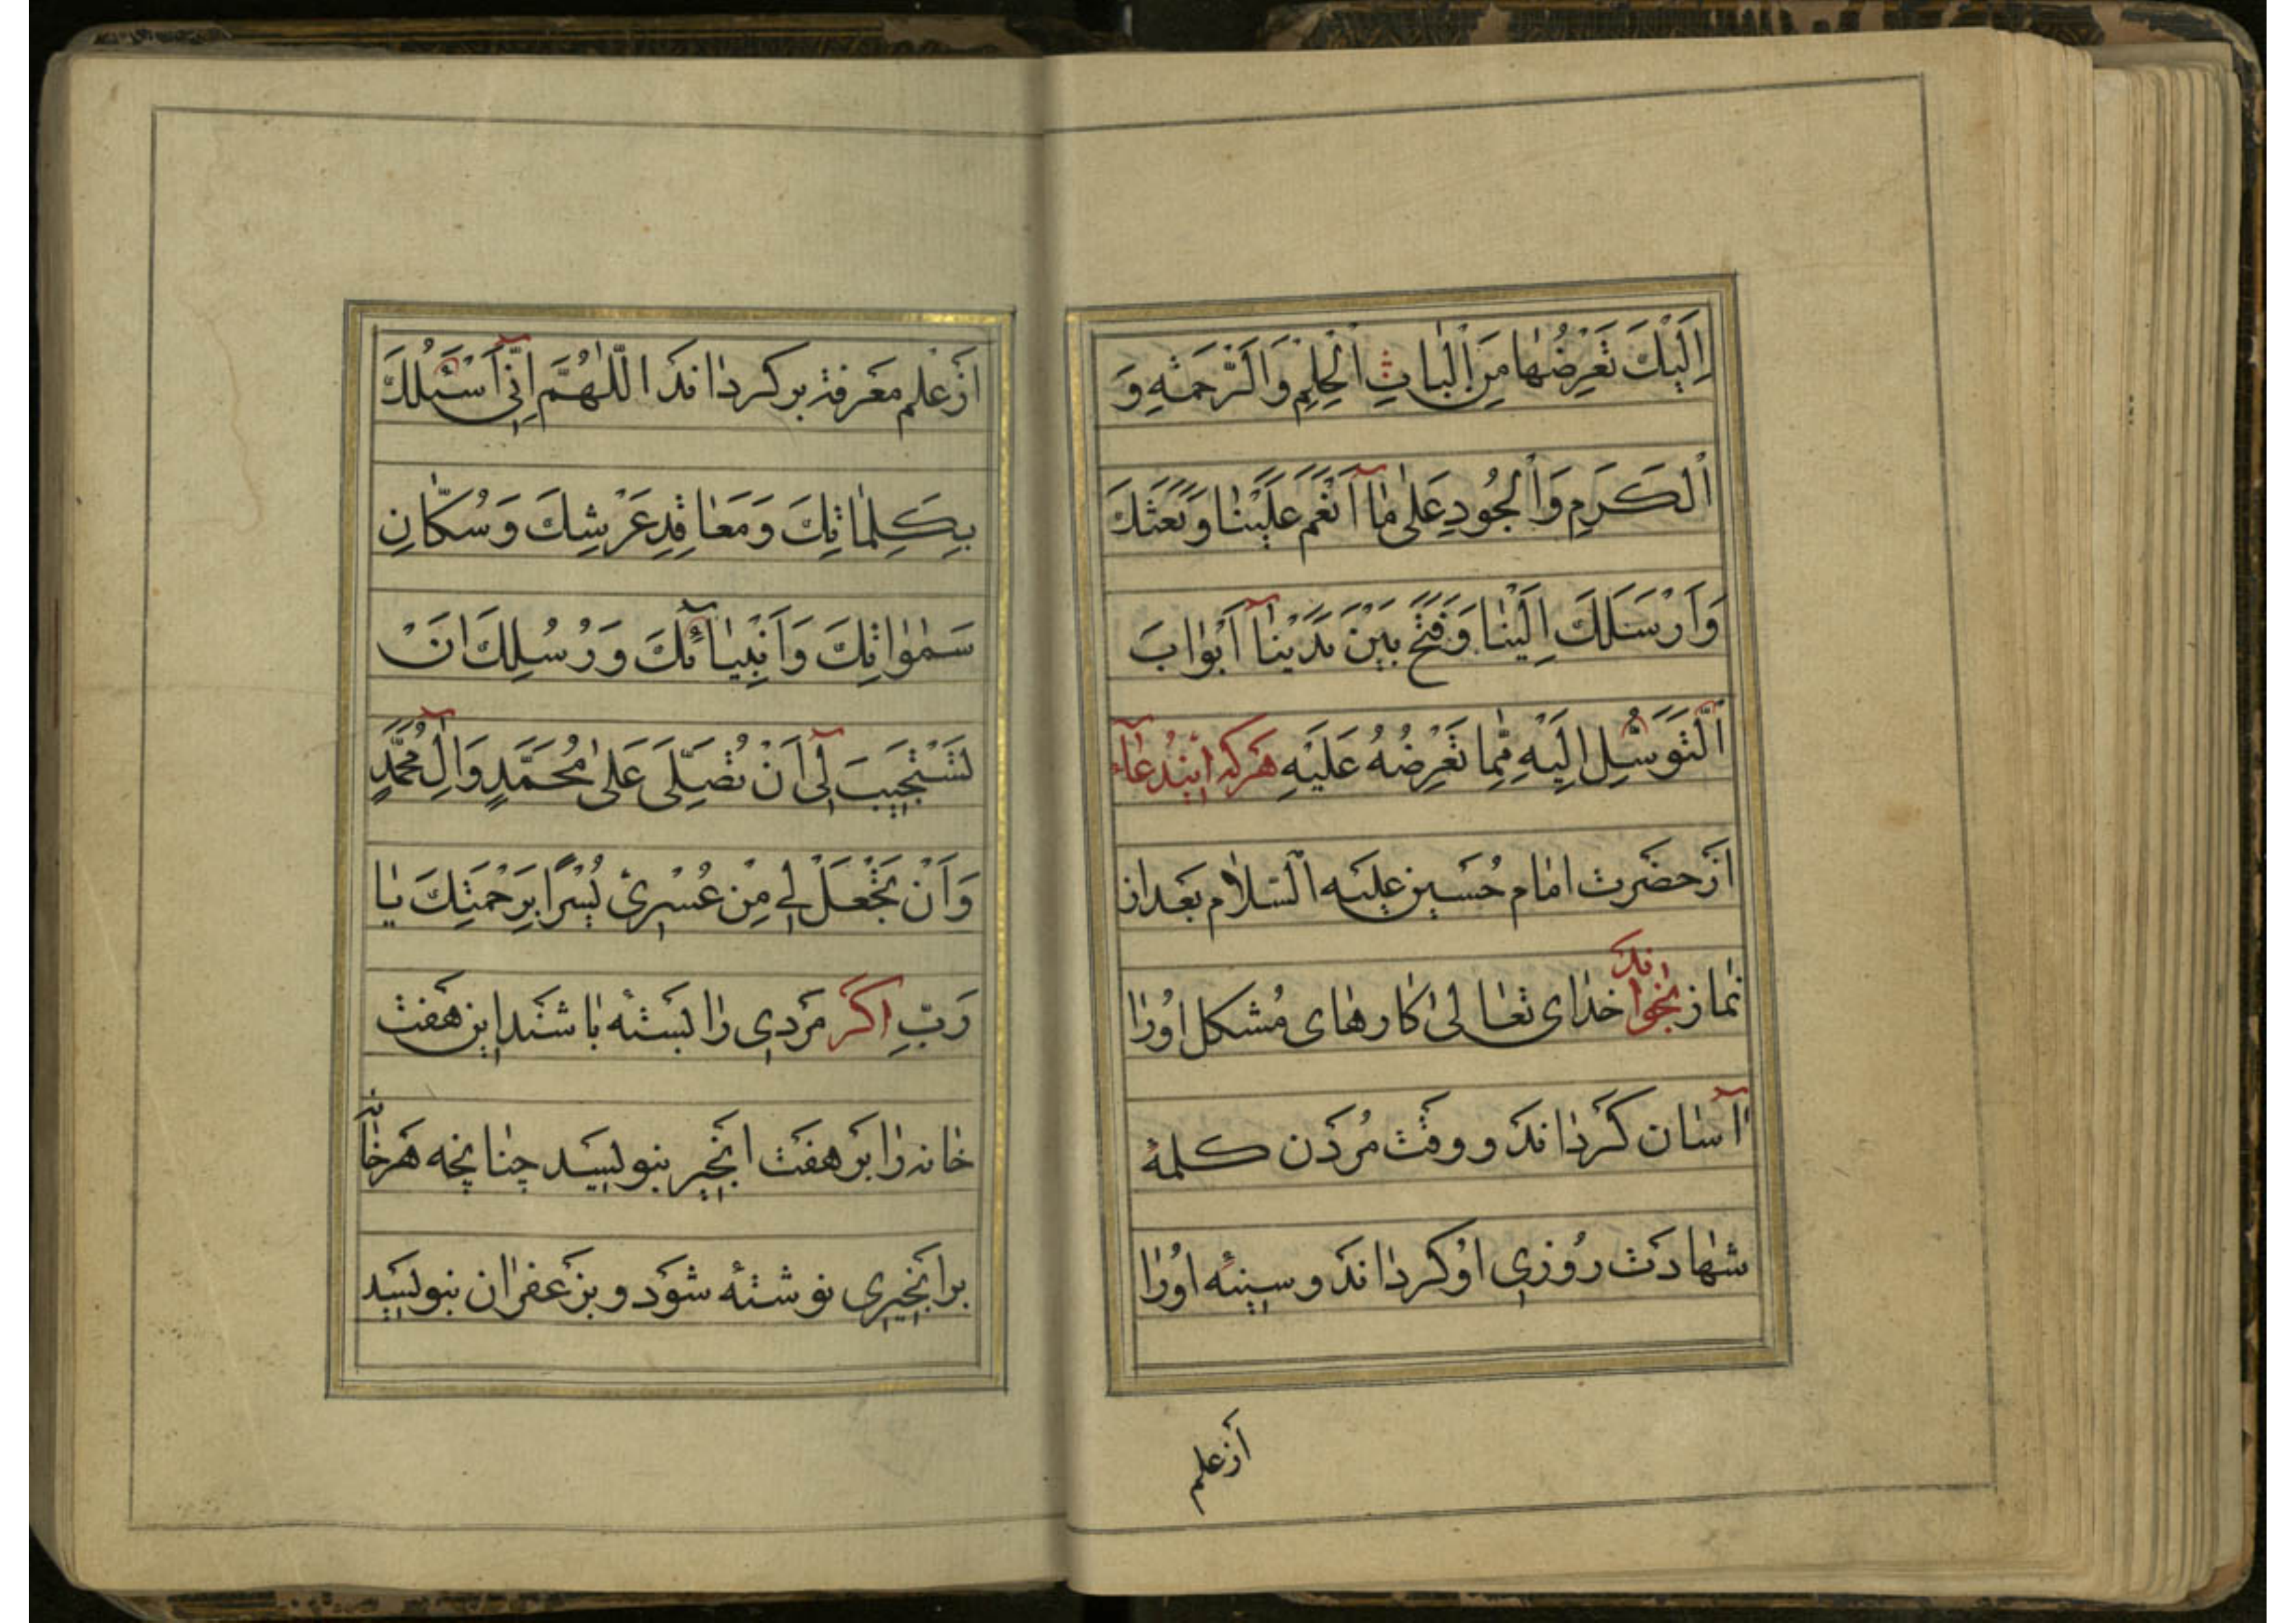 اِلَيْكَ تَعَرُّضُهٰا مِنْ اَلْبابِ الْحِلْمِ وَالرَّحْمَةِ وَ
الْكَرَمِ وَالْجُودِ عَلىٰ مٰا آ اَنْعَمَ عَلَيْنٰا وَبَعَثَكَ
وَاَرْسَلَكَ اِلَيْنٰا وَفَتَحَ بَيْنَ يَدَيْنٰا آ اَبْوٰابَ
التَّوَسُّلِ اِلَيْهِ مِمّا تَعَرَّضُهُ عَلَيْهِ هَرکه ایندُعآء
اَزحضَرت امٰام حُسَین عَلیَه السّلاٰم بَعداز
نمٰاز بخوٰاند خدٰای تعٰالیٰ کارهٰای مُشکل اوُرٰا
آسٰان کَردٰانَد و وقَت مُردَن کلمهٔ
شهٰادَت رُوزی اوُ کردٰانَد و سینهٔ اوُرٰا
اَزعلم
اَزعَلم مَعَرفَة بر کردٰانَد اَللّٰهُمَّ اِنّي اَسْئَلُكَ
بِكَلِمٰاتِكَ وَمَعٰاقِدِ عَرْشِكَ وَسُكّٰانِ
سَمٰوٰاتِكَ وَاَنْبِيٰآئِكَ وَرُسُلِكَ اَنْ
تَسْتَجِيبَ لي اَنْ تُصَلِّىَ عَلىٰ مُحَمَّدٍ وَآلِ مُحَمَّدٍ
وَاَنْ تَجْعَلَ لي مِنْ عُسْري يُسْرًا بِرَحْمَتِكَ يٰا
رَبِّ اکَر مَردی رٰا بَستهٔ بٰاشَند این هَفت
خٰانه رٰا بَر هفَت انجیر بنویسَید چنٰانچه هَرخٰانه
برانجیری نوشتهٔ شوَد و بزَعفرٰان بنویسَید